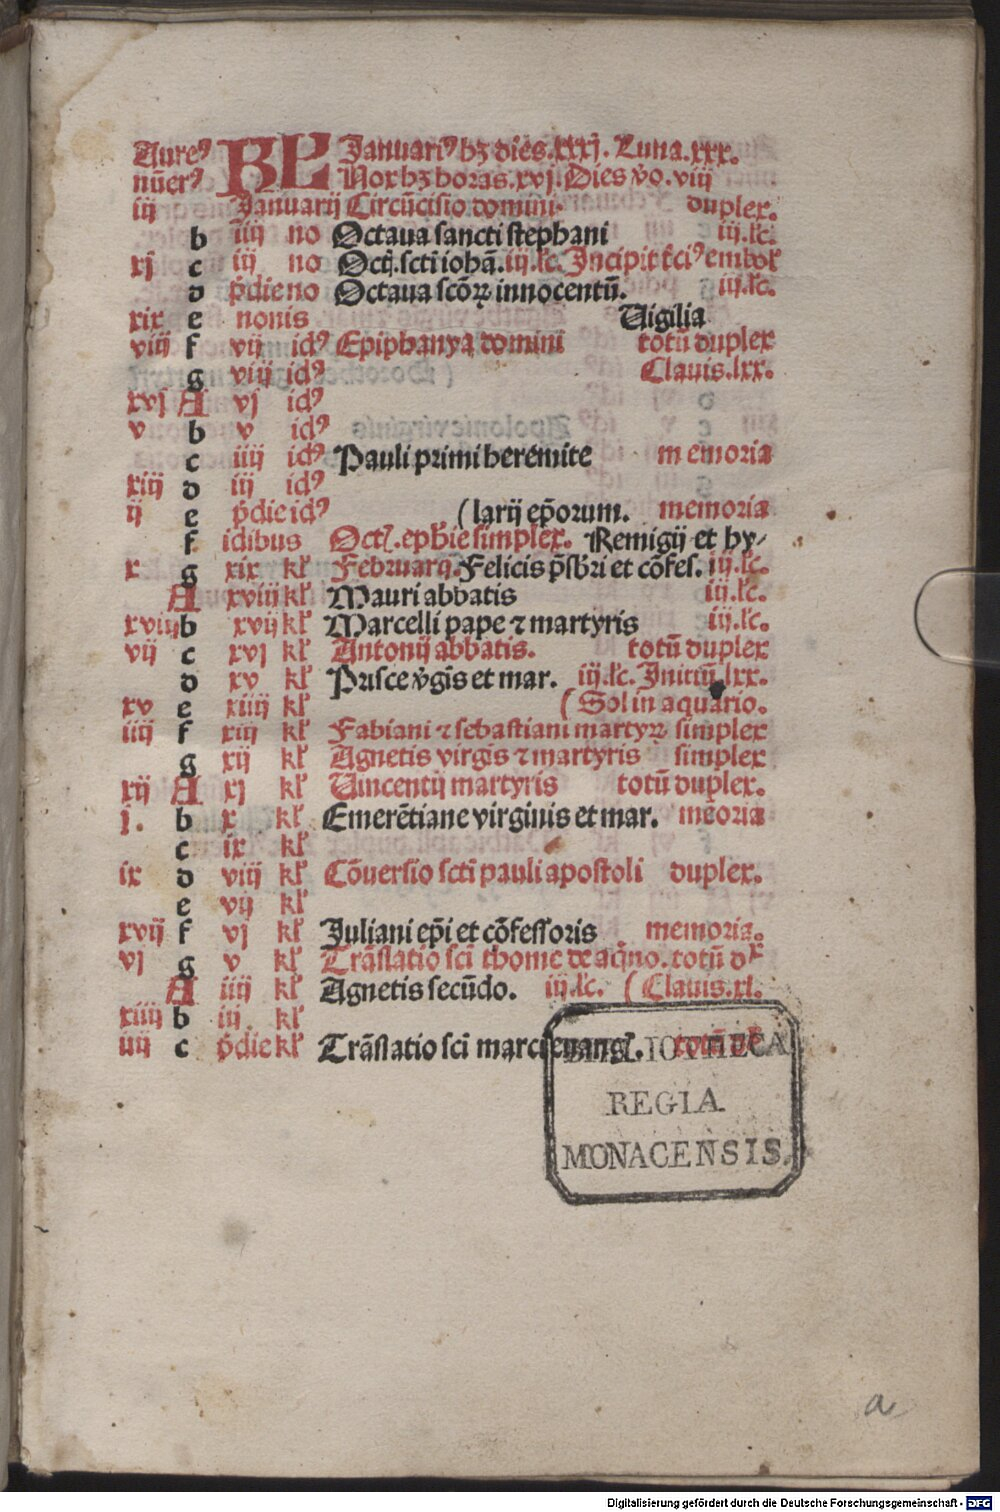 Aureꝰ KL Januariꝰ hꝫ dies.xxxj. Luna.xxx.
nūerꝰ Nox hꝫ horas.xvj. Dies v̄o.viij
iij Januarij Circūcisio domini. duplex.
b iiij no Octaua sancti stephani iij.lc̄.
xj c iij no Octꝭ.scti iohā.iij.lc̄. Incipit t̄ciꝰ embol
d p̄die no Octaua scōꝝ innocentū. iij.lc̄.
xix e nonis Uigilia
viij f vij idꝰ Epiphanya domini totū duplex
g viij idꝰ Clauis.lxx.
xvj A vj idꝰ
v b v idꝰ
c iiij idꝰ Pauli primi heremite memoria
xiij d iij idꝰ
ij e p̄die idꝰ (larij ep̄orum. memoria
f idibus Octꝭ.eph̄ie simplex. Remigij et hy-
x g xix kl̄ Februarij. Felicis p̄sbri et cōfes. iij.lc̄.
A xviij kl̄ Mauri abbatis iij.lc̄.
xviij b xvij kl̄ Marcelli pape ⁊ martyris iij.lc̄.
vij c xvj kl̄ Antonij abbatis. totū duplex
d xv kl̄ Prisce v̄gis et mar. iij.lc̄. Initiū.lxx.
xv e xiiij kl̄ (Sol in aquario.
iiij f xiij kl̄ Fabiani ⁊ sebastiani martyꝝ simplex
g xij kl̄ Agnetis virgis ⁊ martyris simplex
xij A xj kl̄ Uincentij martyris totū duplex.
j. b x kl̄ Emerētiane virginis et mar. meoria
c ix kl̄
ix d viij kl̄ Cōuersio scti pauli apostoli duplex.
e vij kl̄
xvij f vj kl̄ Juliani ep̄i et cōfessoris memoria.
vj g v kl̄ Trāslatio sci thome de aq̄no. totū d
A iiij kl̄ Agnetis secūdo. iij.lc̄. (Clauis.xl.
xiiij b iij kl̄
iij c p̄die kl̄ Trāslatio sci marci euangꝭ. totū
BIBLIOTHECA
REGIA
MONACENSIS.
a
Digitalisierung gefördert durch die Deutsche Forschungsgemeinschaft - DFG